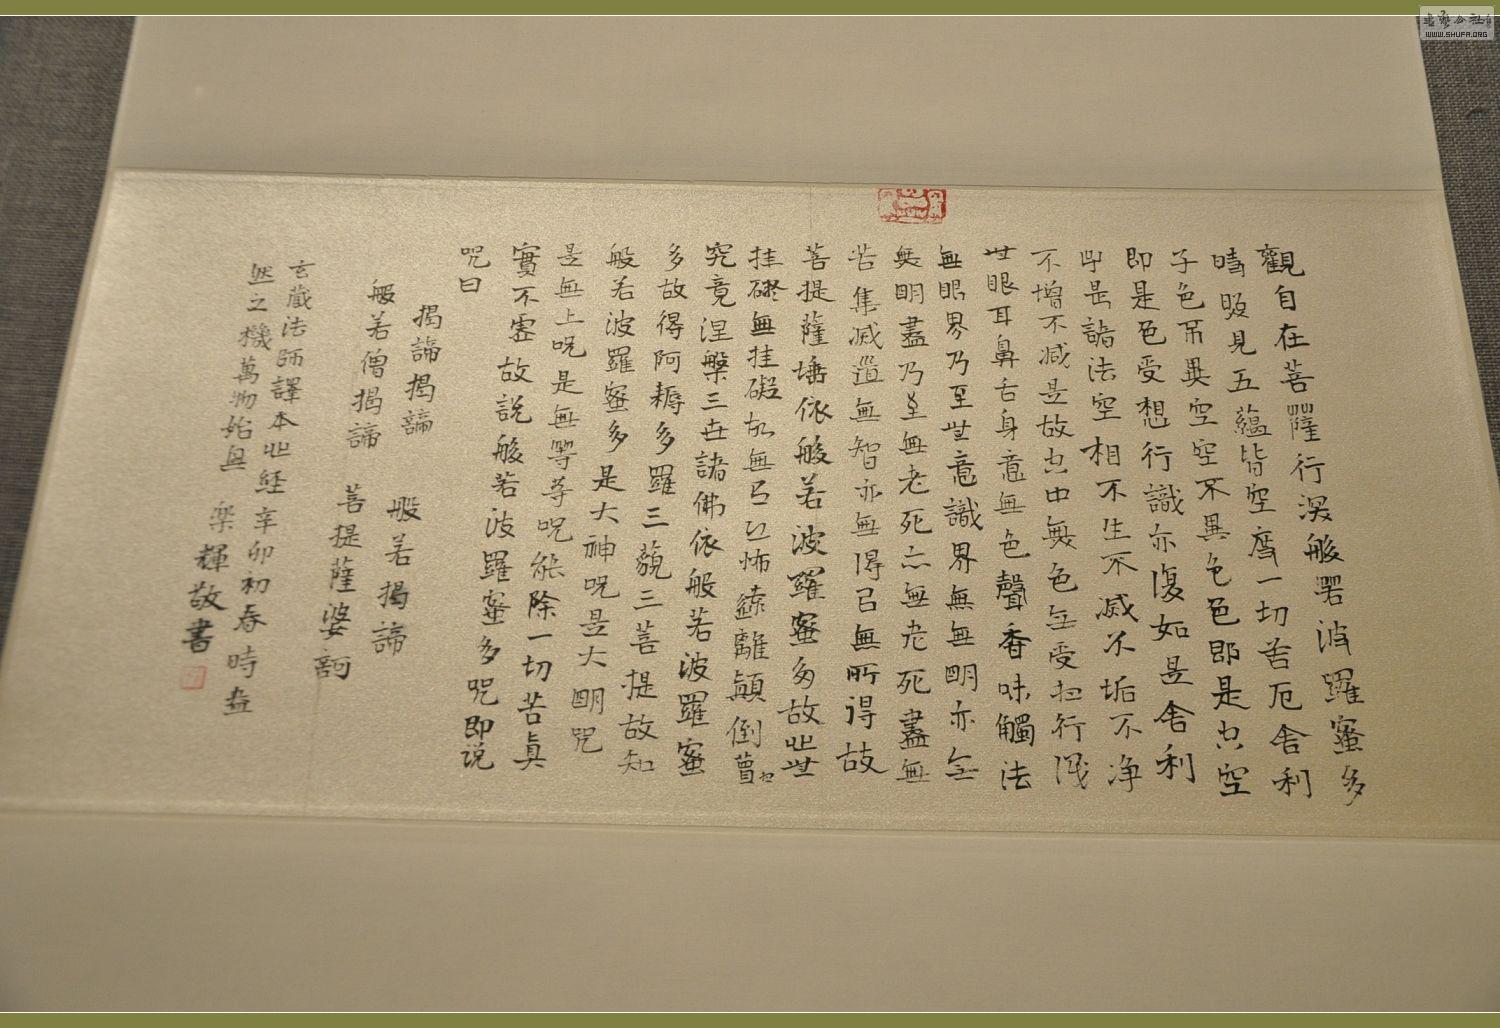 觀自在菩薩行深般若波羅蜜多
時照見五蘊皆空度一切苦厄舍利
子色不異空空不異色色即是空空
即是色受想行識亦復如是舍利
子是諸法空相不生不滅不垢不净
不增不減是故空中無色無受想行識
無眼耳鼻舌身意無色聲香味觸法
無眼界乃至無意識界無無明亦無
無明盡乃至無老死亦無老死盡無
苦集滅道無智亦無得以無所得故
菩提薩埵依般若波羅蜜多故
挂礙無挂礙故無有恐怖遠離顛倒夢想
究竟涅槃三世諸佛依般若波羅蜜
多故得阿耨多羅三藐三菩提故知
般若波羅蜜多是大神呪是大明呪
是無上呪是無等等呪能除一切苦真
實不虛故説般若波羅蜜多呪即说
呪曰
揭諦揭諦 般若揭諦
般若僧揭諦 菩提薩婆訶
玄藏法師譯本此经辛卯初春時
然之機萬物始與 樂輝敬書
書法公社
WWW.SHUFA.ORG